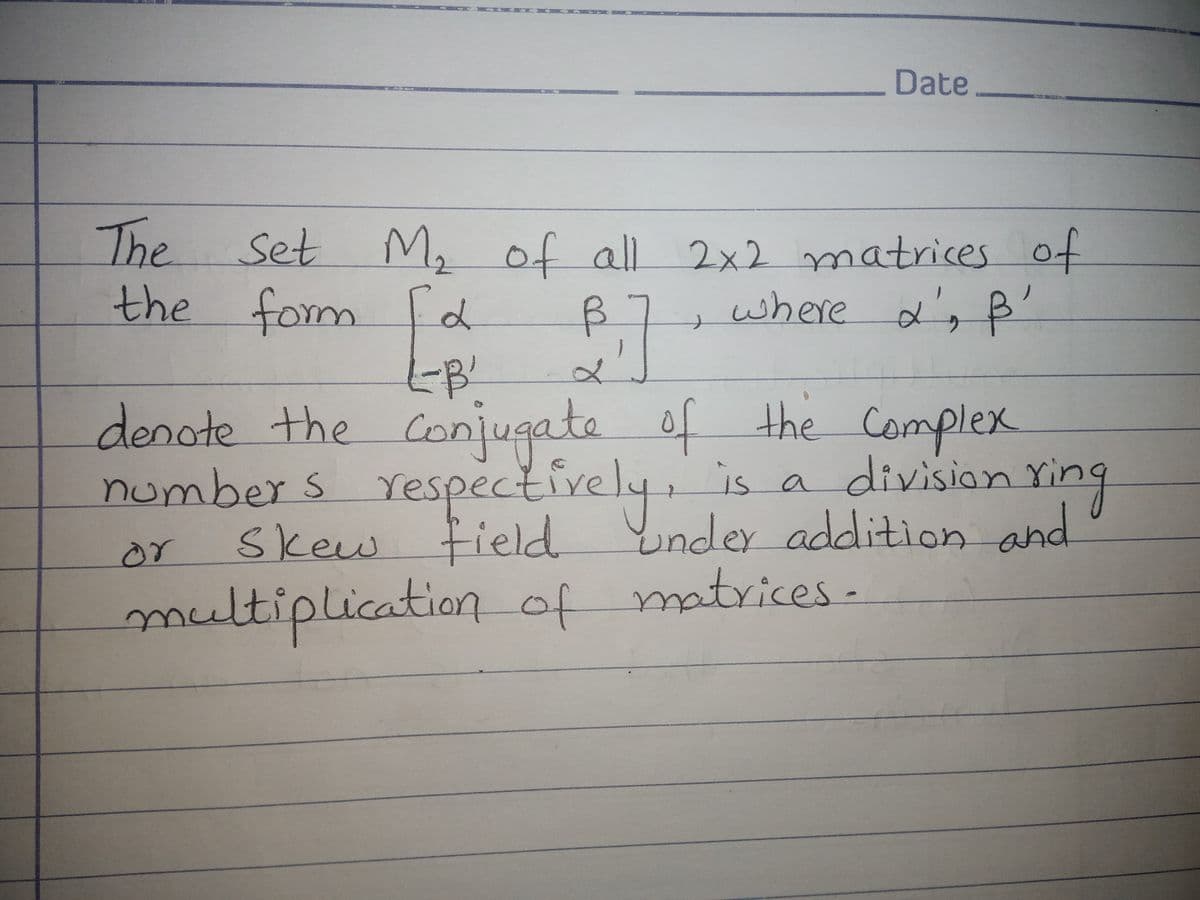 Date
The set M₂ of all 2x2 matrices of
the form [α β], where α', β'
[-β' α']
denote the conjugate of the complex
numbers respectively, is a division ring
or skew field under addition and
multiplication of matrices.